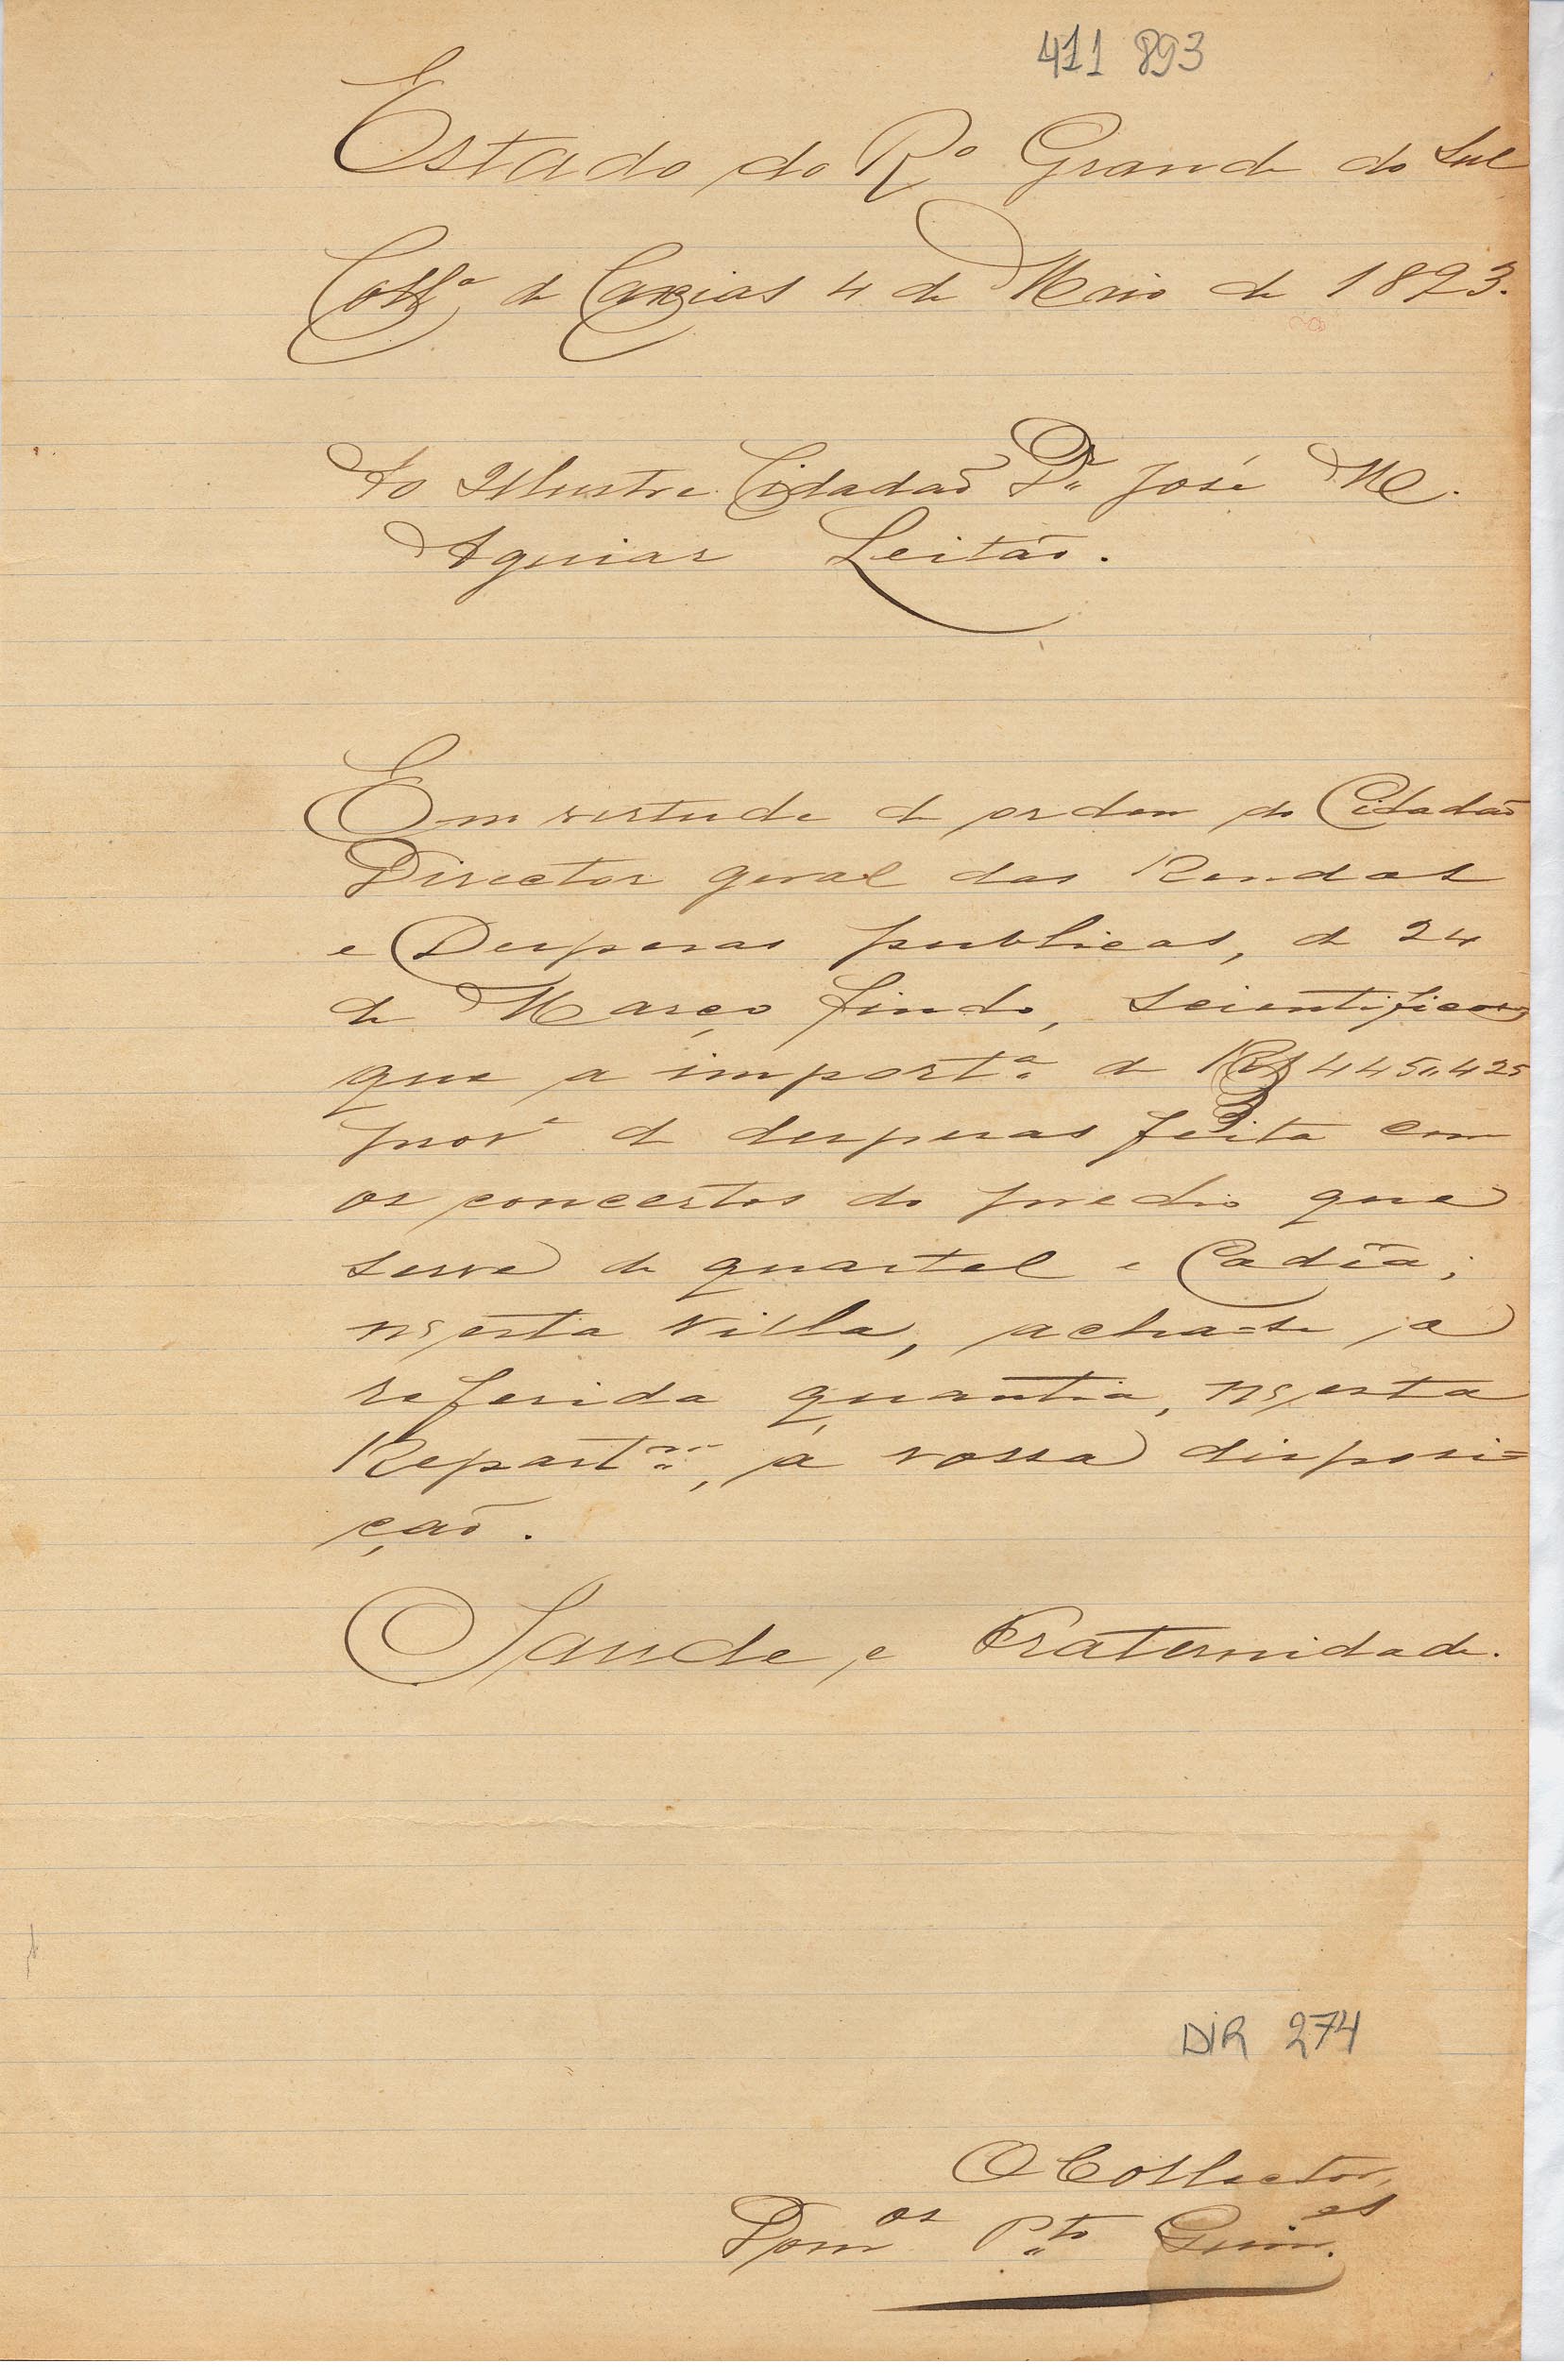 411 893
Estado do Rº Grande do Sul
Collª de Caxias 4 de Maio de 1893.
Ao Illustre Cidadaõ Dr José M.
Aguiar Leitão.
Em virtude de ordem do Cidadaõ
Director geral das Rendas
e Despesas publicas, de 24
de Março findo, scientifico
que a importª de Rs 445,,425
provᵉ de despesas feita com
os concertos do predio que
serve de quartel e Cadêa,
n'esta Villa, acha=se a
referida quantia, n'esta
Repartᵐ, á vossa disposi=
çaõ.
Saude e Fraternidade.
DIR 274
O Collector,
Domºˢ Pᵗᵒ Guimᵉˢ